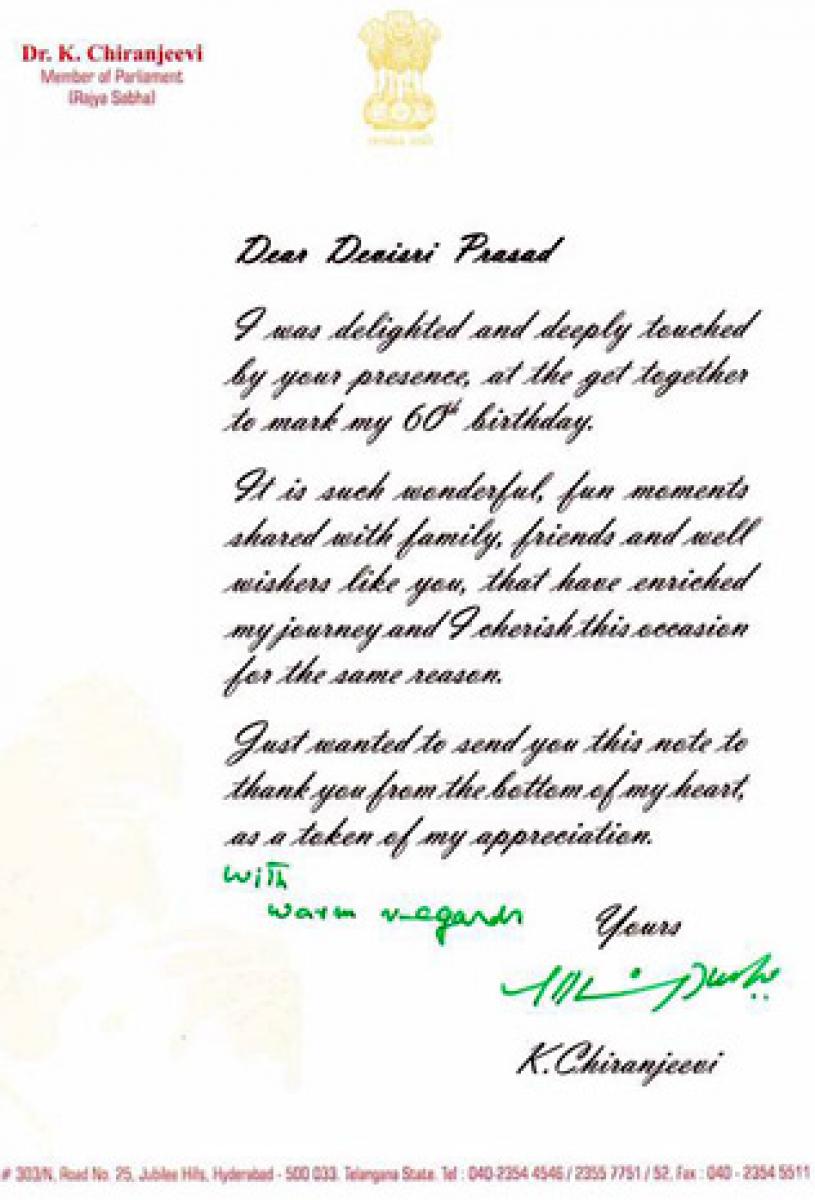 Dr. K. Chiranjeevi
Member of Parliament
(Rajya Sabha)
Dear Devisri Prasad
I was delighted and deeply touched
by your presence, at the get together
to mark my 60th birthday.
It is such wonderful, fun moments
shared with family, friends and well
wishers like you, that have enriched
my journey and I cherish this occasion
for the same reason.
Just wanted to send you this note to
thank you from the bottom of my heart,
as a token of my appreciation.
With
warm regards
Yours
K.Chiranjeevi
# 303/N, Road No. 25, Jubilee Hills, Hyderabad - 500 033. Telangana State. Tel : 040-2354 4546 / 2355 7751 / 52, Fax : 040 - 2354 5511